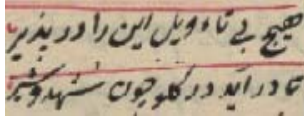 هیچ بی تاءویل این را در پذیر
تا در آید در گلو چون شهد و شیر